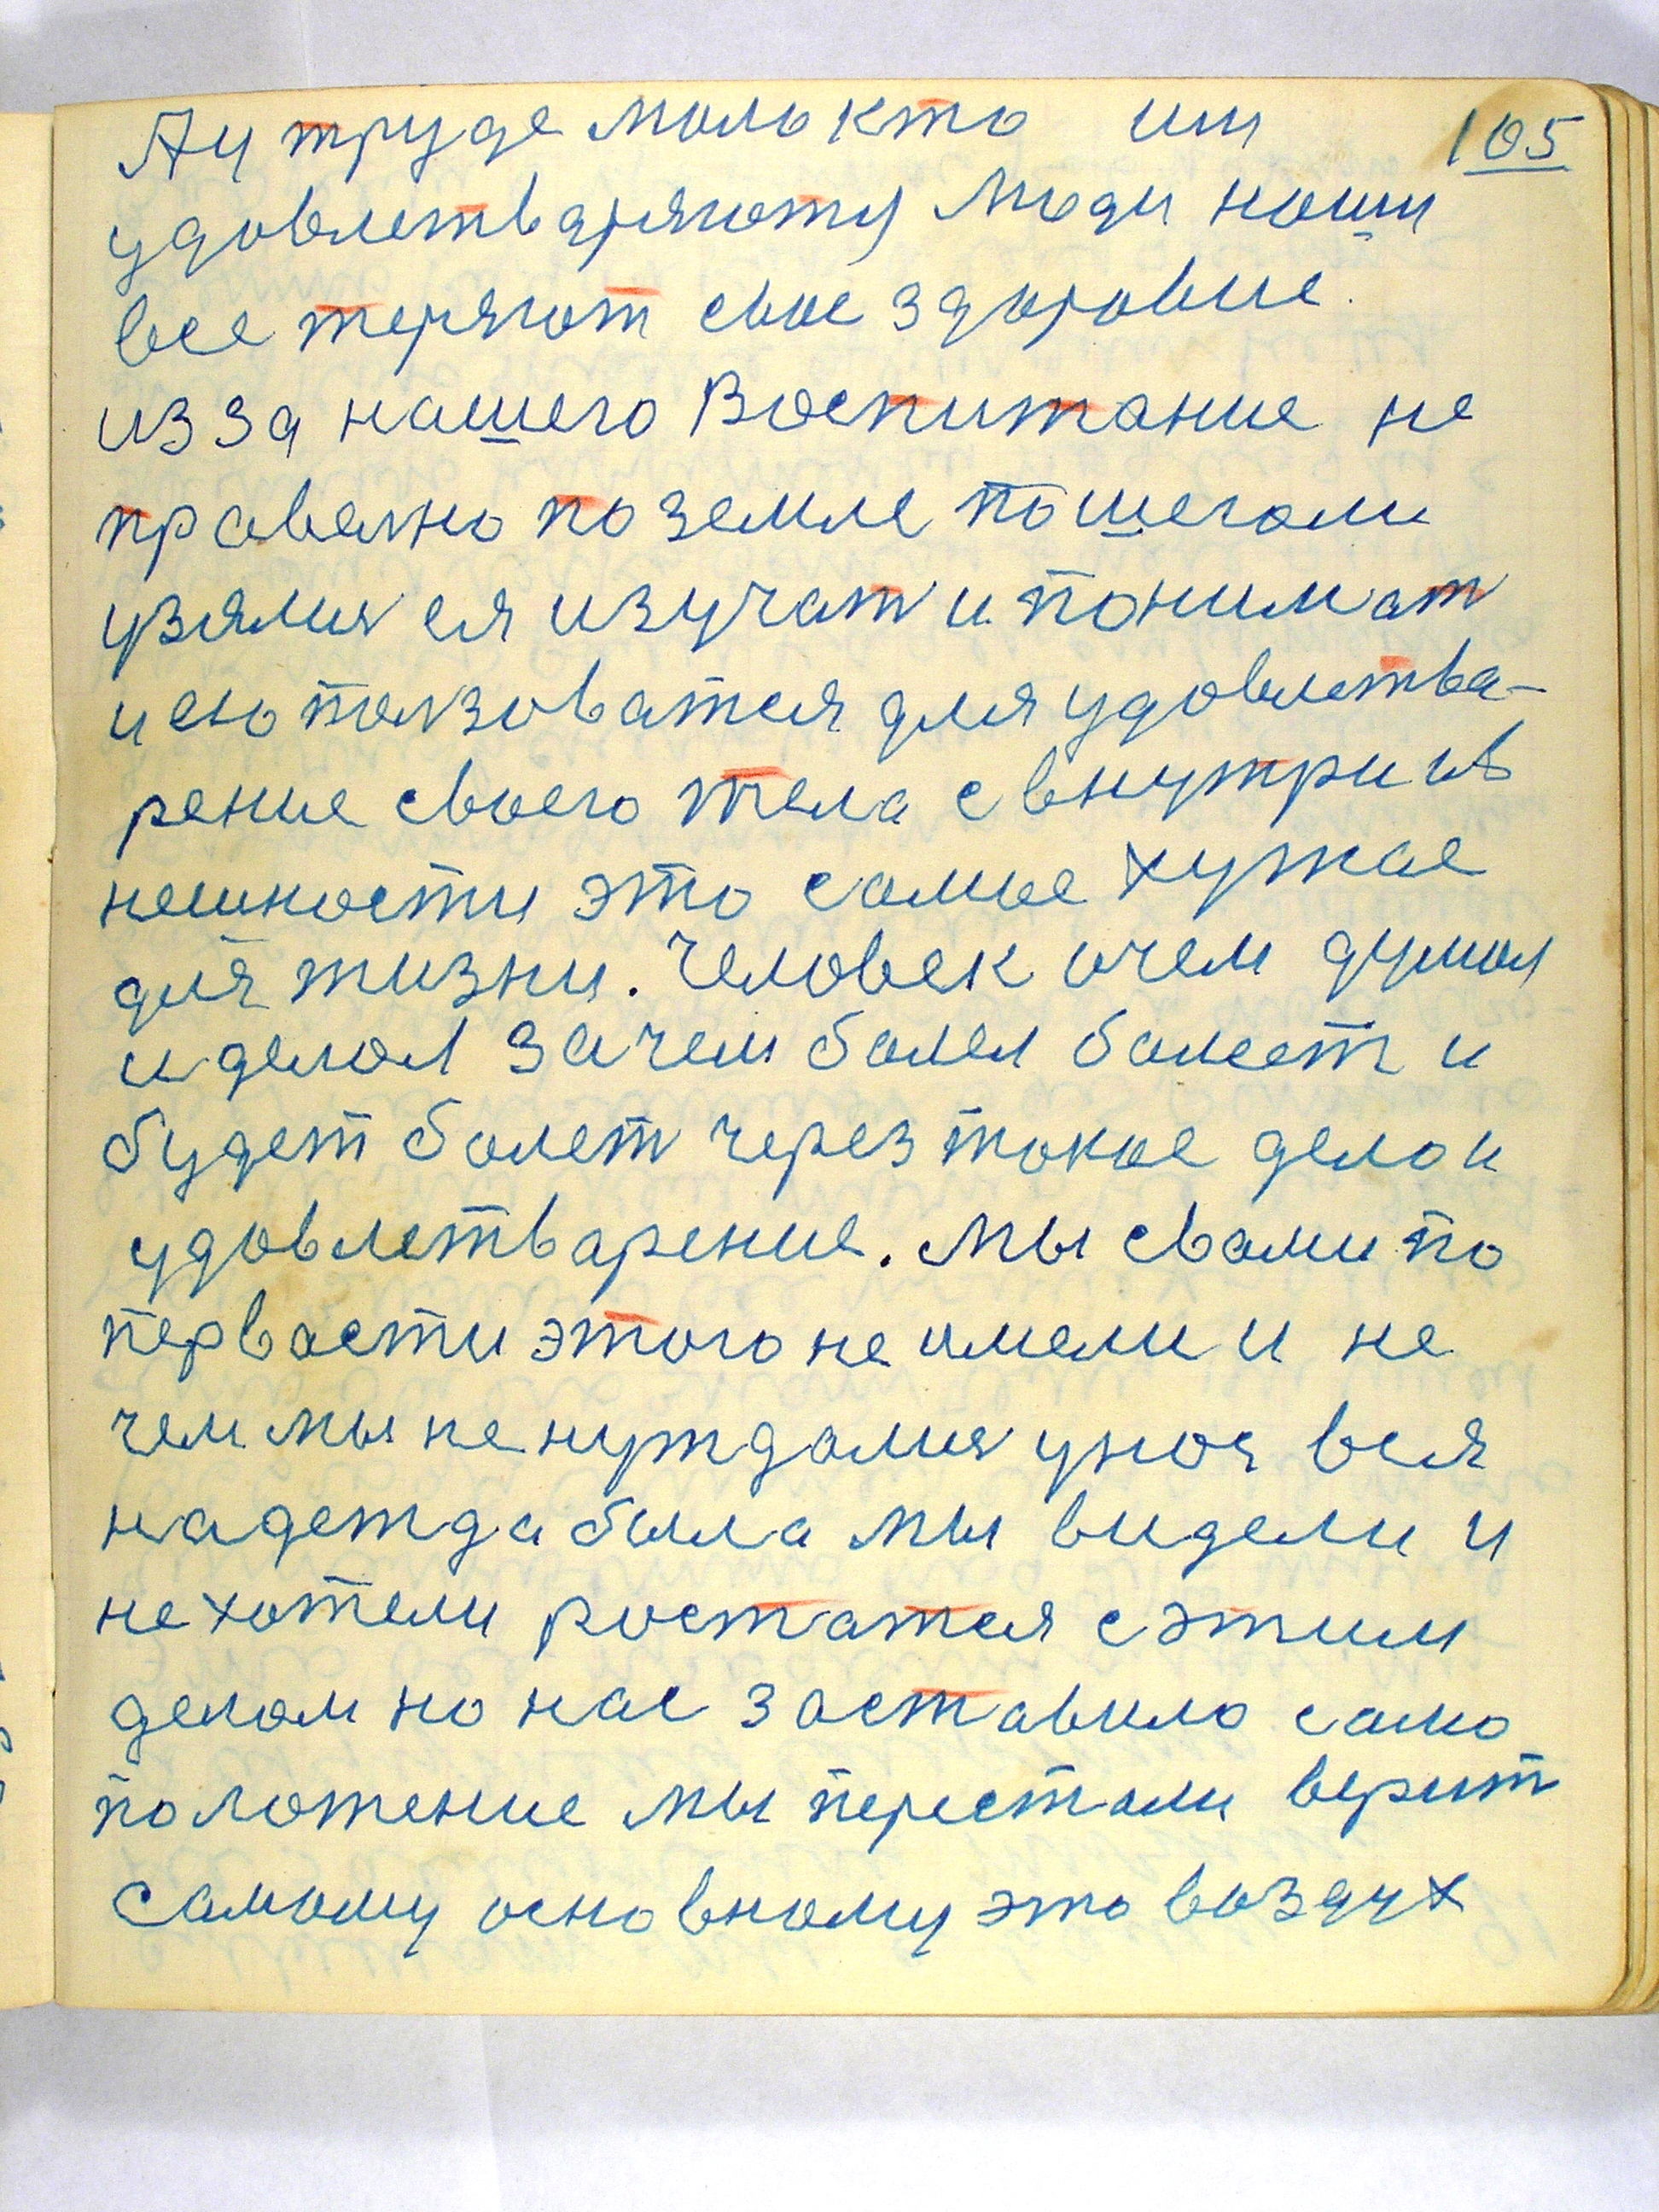 Ау труде мало кто им 105
удовлетваряютя Люди наши
все теряют свое здоровие.
из за нашего Воспитание не
правелно по земле пошегали
узялися ея изучат и понимат
и ею ползоватся для удовлетва-
рение своего тела с внутри и в
нешности это самое хужае
для жизни. Человек очем думал
и делал зачем болел болеет и
будет болет через токое дело и
удовлетварение. Мы свами по
первости этого не имели и не
чем мы не нуждалися унас вся
надежда была мы видели и
не хотели ростатся с этим
делом но нас заставило само
положение мы перестали верит
самому основному это воздух